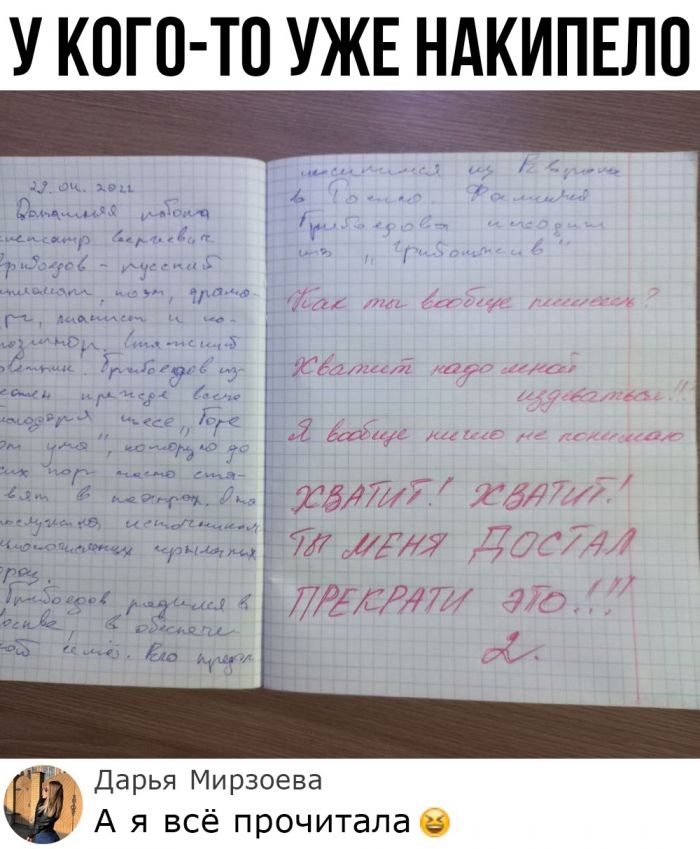 У КОГО-ТО УЖЕ НАКИПЕЛО
Домашняя работа
Грибоедов - русский
дипломат, поэт, драма-
рг, пианист и ко-
позитор. Статский
советник. Грибоедов из-
вестен прежде всего
благодаря пьесе „Горе
от ума", которую до
сих пор часто ста-
вят в театрах. Она
послужила источником
многочисленных крылатых
фраз.
Грибоедов родился в
Москве, в обеспече-
ной семье. Его предки
из Европы
в Россию. Фамилия
Грибоедова
из „
Как ты вообще пишешь?
Хватит надо мной
издеваться!!
Я вообще ничего не понимаю
ХВАТИТ! ХВАТИТ!
ТЫ МЕНЯ ДОСТАЛ
ПРЕКРАТИ ЭТО!!!
2.
Дарья Мирзоева
А я всё прочитала😆